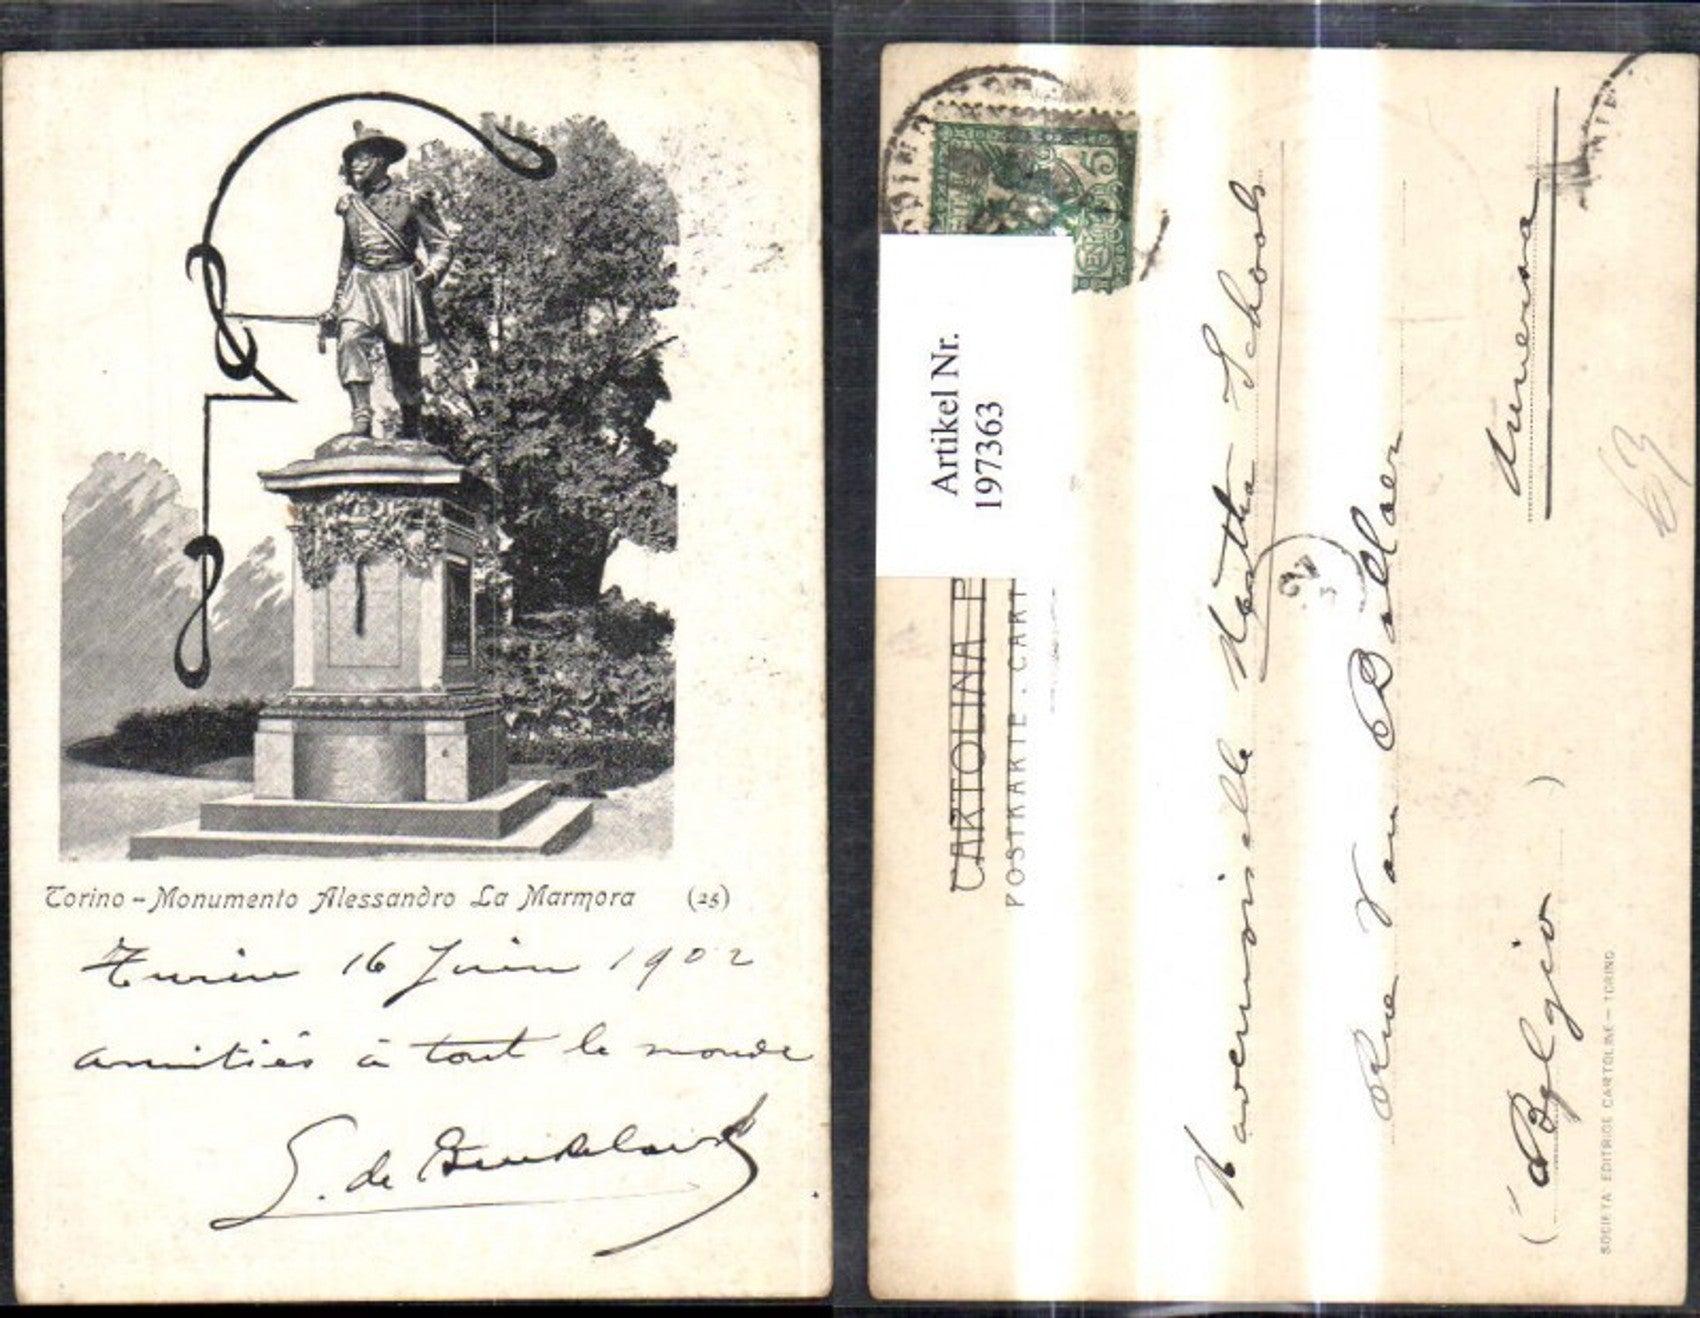 Torino - Monumento Alessandro La Marmora (25)
Turin 16 Juin 1902
amitiés à tout le monde
Artikel Nr.
197363
CARTOLINA P
POSTKARTE . CART
5
Mademoiselle Schools
Rue Van
Anversa
(Belgio)
63
SOCIETA EDITRICE CARTOLINE - TORINO